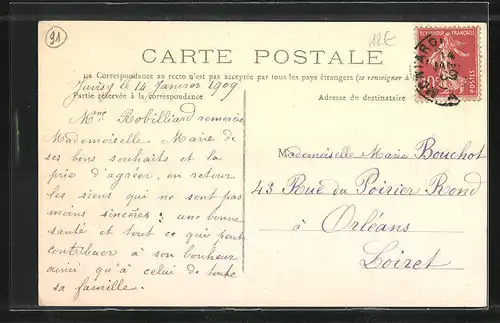 91
12€
CARTE POSTALE
La Correspondance au recto n'est pas acceptée par tous les pays étrangers (se renseigner à la
Juvisy le 14 Janvier 1909
Partie réservée à la correspondance
Adresse du destinataire
Mme Robilliard remercie
Mademoiselle Marie de
ses bons souhaits et la
prie d'agréer, en retour,
les siens qui ne sont pas
moins sincères : une bonne
santé et tout ce qui peut
contribuer à son bonheur
ainsi qu'à celui de toute
sa famille.
Mademoiselle Marie Bouchot
43 Rue du Poirier Rond
à Orléans
Loiret
REPUBLIQUE FRANÇAISE
10
POSTES